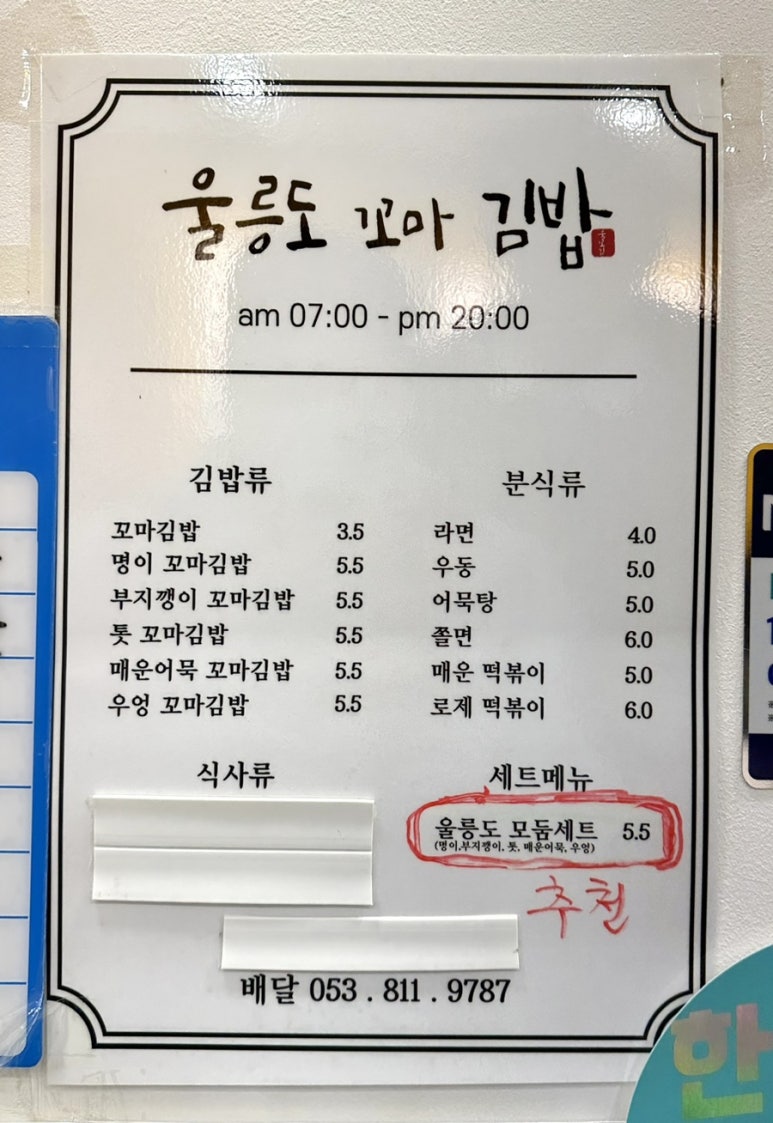 울릉도 꼬마 김밥
am 07:00 - pm 20:00
김밥류
꼬마김밥 3.5
명이 꼬마김밥 5.5
부지깽이 꼬마김밥 5.5
톳 꼬마김밥 5.5
매운어묵 꼬마김밥 5.5
우엉 꼬마김밥 5.5
분식류
라면 4.0
우동 5.0
어묵탕 5.0
쫄면 6.0
매운 떡볶이 5.0
로제 떡볶이 6.0
식사류
세트메뉴
울릉도 모둠세트 5.5
(명이,부지깽이, 톳, 매운어묵, 우엉)
추천
배달 053 . 811 . 9787
한